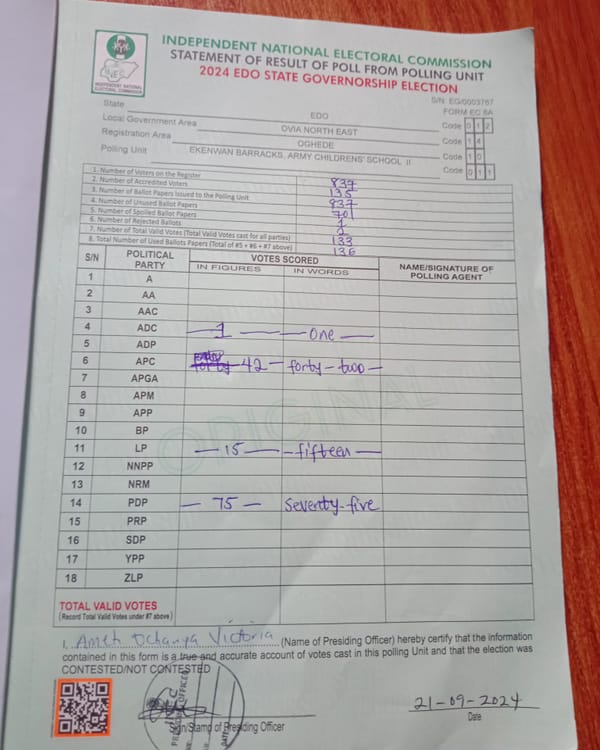 INDEPENDENT NATIONAL ELECTORAL COMMISSION
STATEMENT OF RESULT OF POLL FROM POLLING UNIT
2024 EDO STATE GOVERNORSHIP ELECTION
INEC
INDEPENDENT NATIONAL
ELECTORAL COMMISSION
S/N: EG/0003767
FORM EC 8A
State EDO Code 0 1 2
Local Government Area OVIA NORTH EAST Code 1 4
Registration Area OGHEDE Code 1 0
Polling Unit EKENWAN BARRACKS, ARMY CHILDRENS' SCHOOL II Code 0 1 1
1. Number of Voters on the Register 837
2. Number of Accredited Voters 135
3. Number of Ballot Papers Issued to the Polling Unit 837
4. Number of Unused Ballot Papers 701
5. Number of Spoiled Ballot Papers 1
6. Number of Rejected Ballots 2
7. Number of Total Valid Votes (Total Valid Votes cast for all parties) 133
8. Total Number of Used Ballots Papers (Total of #5 + #6 + #7 above) 136
S/N POLITICAL PARTY VOTES SCORED NAME/SIGNATURE OF POLLING AGENT
IN FIGURES IN WORDS
1 A
2 AA
3 AAC
4 ADC 1 one
5 ADP
6 APC 42 forty-two
7 APGA
8 APM
9 APP
10 BP
11 LP 15 fifteen
12 NNPP
13 NRM
14 PDP 75 Seventy-five
15 PRP
16 SDP
17 YPP
18 ZLP
ORIGINAL
TOTAL VALID VOTES
(Record Total Valid Votes under #7 above)
I, Ameh Ochanya Victoria (Name of Presiding Officer) hereby certify that the information
contained in this form is a true and accurate account of votes cast in this polling Unit and that the election was
CONTESTED/NOT CONTESTED
INEC
PRESIDING OFFICER
DATE
Sign/Stamp of Presiding Officer
21-09-2024
Date